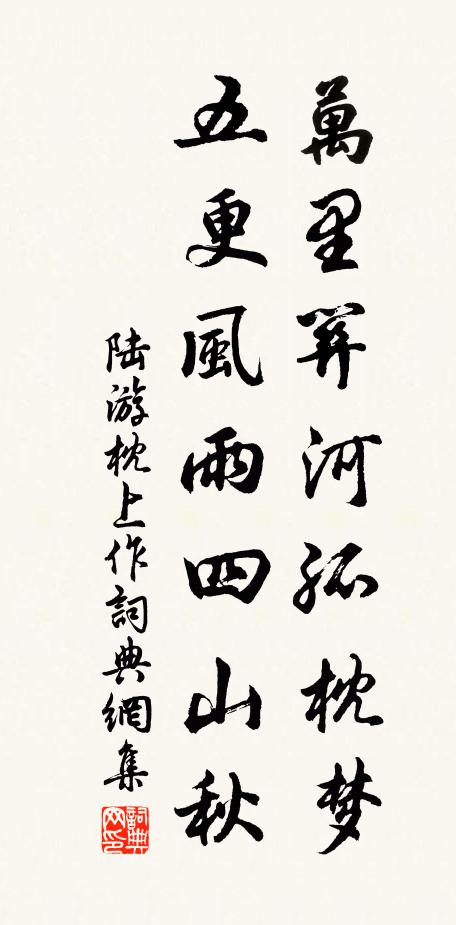 萬里關河孤枕梦
五更風雨四山秋
陆游枕上作詞典網集
詞典网印